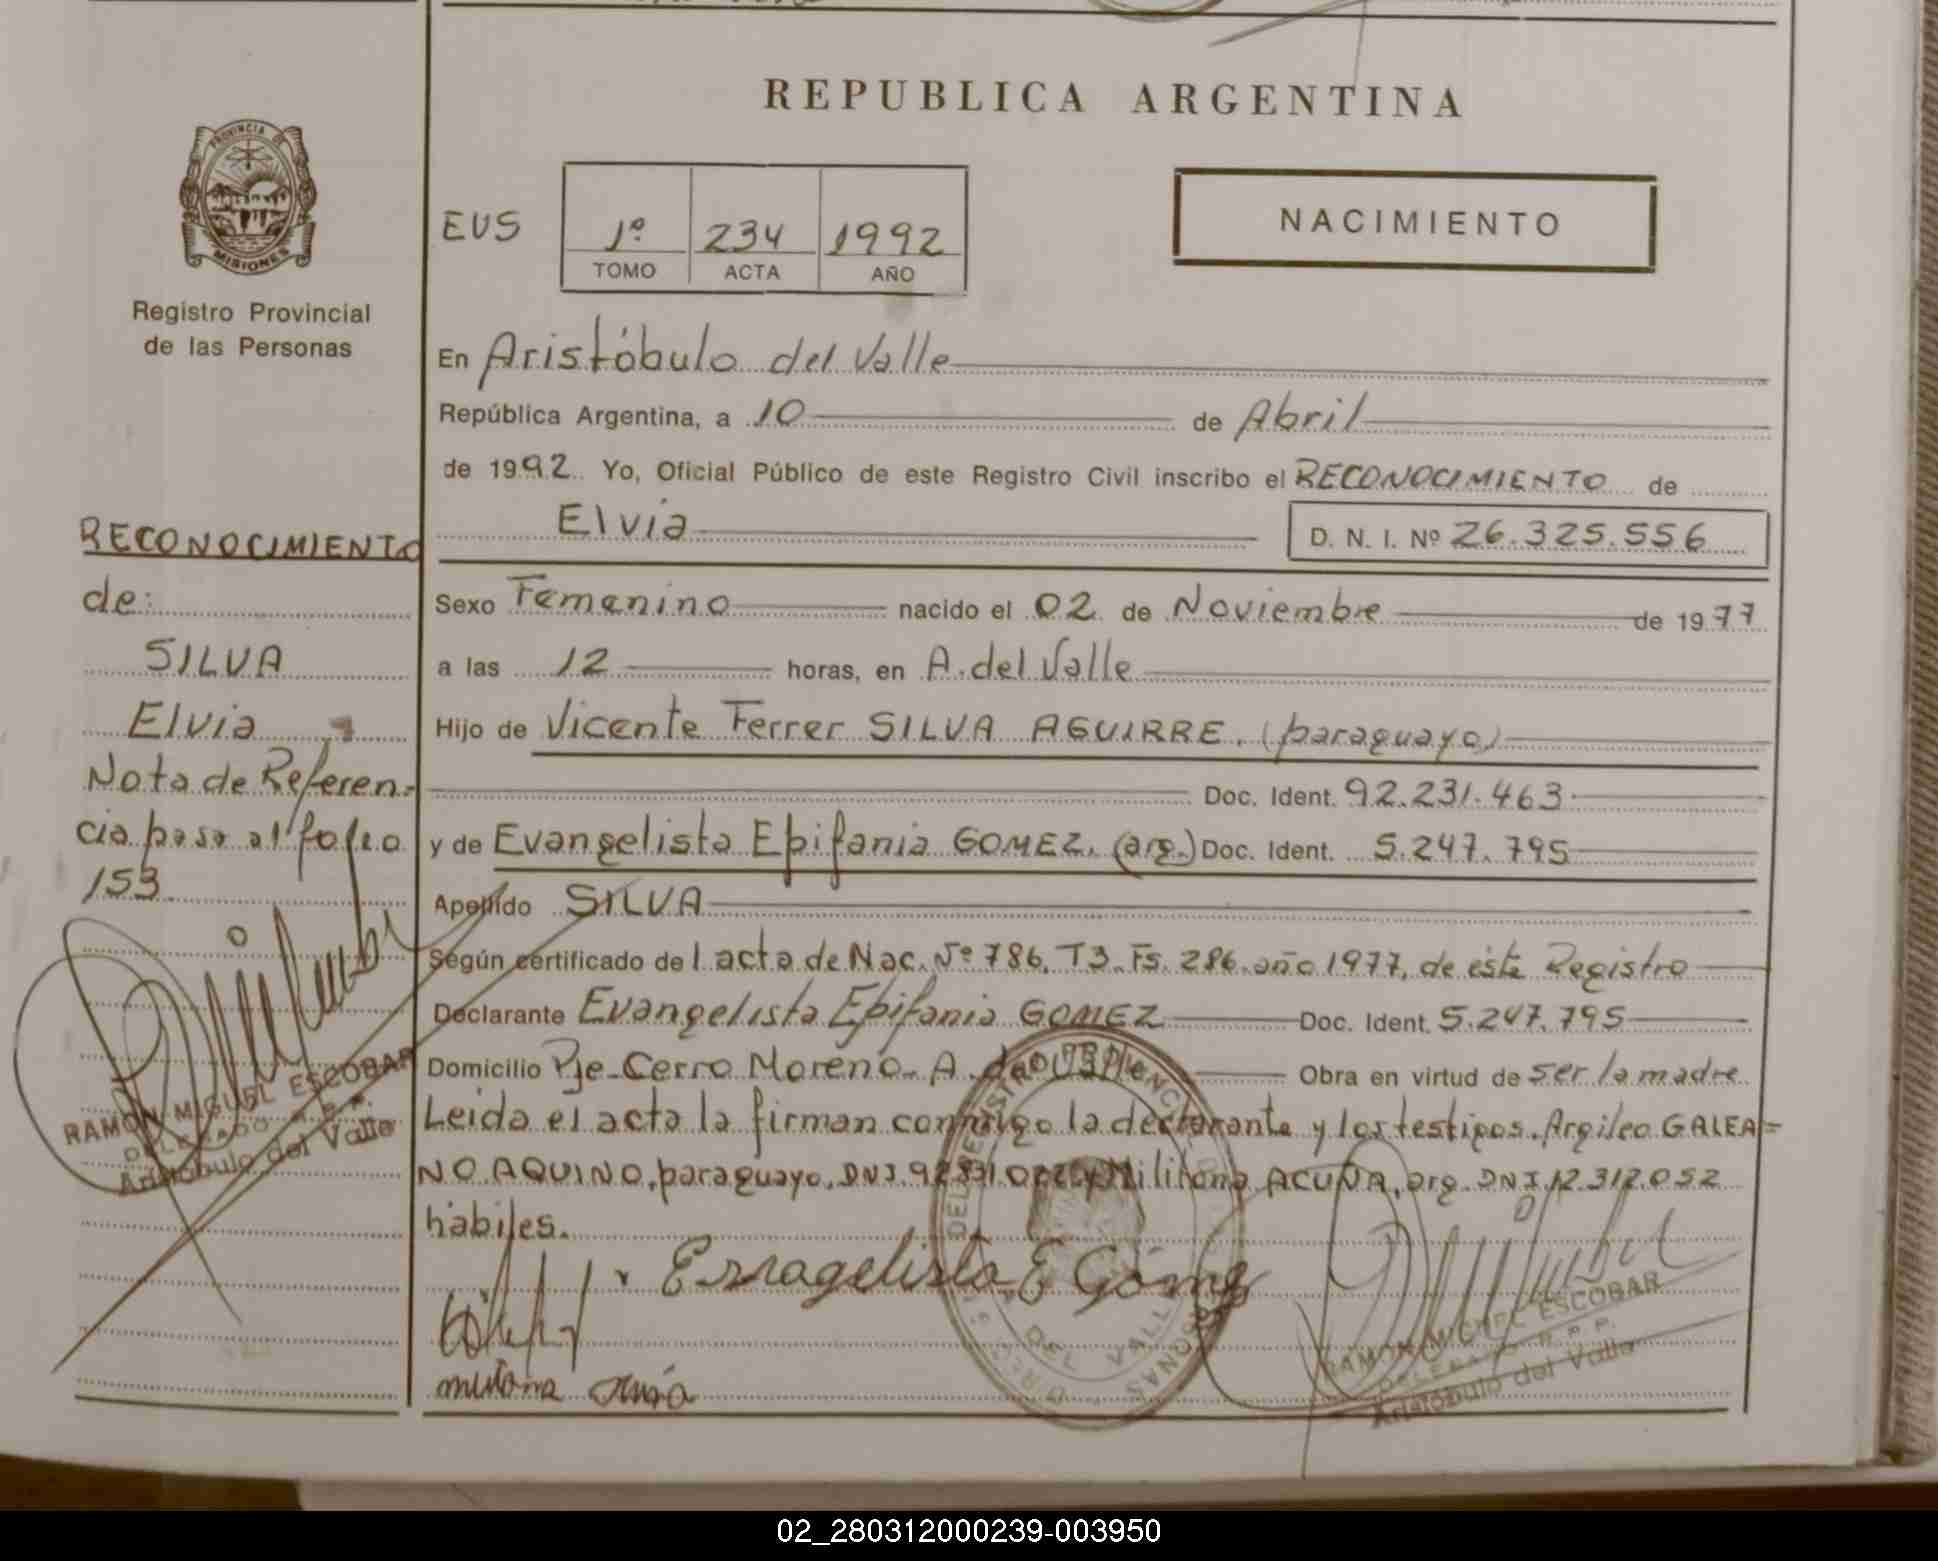 REPUBLICA ARGENTINA
PROVINCIA DE
MISIONES
Registro Provincial
de las Personas
EUS
1º 234 1992
TOMO ACTA AÑO
NACIMIENTO
En Aristóbulo del Valle
República Argentina, a 10 de Abril
de 1992. Yo, Oficial Público de este Registro Civil inscribo el RECONOCIMIENTO de
Elvia D. N. I. Nº 26.325.556
Sexo Femenino nacido el 02 de Noviembre de 1977
a las 12 horas, en A. del Valle
Hijo de Vicente Ferrer SILVA AGUIRRE. (paraguayo)
Doc. Ident. 92.231.463
y de Evangelista Epifania GOMEZ. (arg.) Doc. Ident. 5.247.795
Apellido SILVA
Según certificado de l acta de Nac. Nº 786. T3. Fs. 286. año 1977, de éste Registro
Declarante Evangelista Epifania GOMEZ Doc. Ident. 5.247.795
Domicilio Pje. Cerro Moreno. A. del Valle Obra en virtud de ser la madre
Leida el acta la firman conmigo la declarante y los testigos. Argileo GALEA=
NO AQUINO, paraguayo, DNI. y Militona ACUÑA, arg. DNI 12.312.052
hábiles.
Evragelista E Gómez
militona
RAMON MIGUEL ESCOBAR
DELEGADO R. P. P.
Aristóbulo del Valle
RECONOCIMIENTO
de:
SILVA
Elvia
Nota de Referen=
cia pasa al folio
153.
RAMON MIGUEL ESCOBAR
DELEGADO R. P. P.
Aristóbulo del Valle
02_280312000239-003950